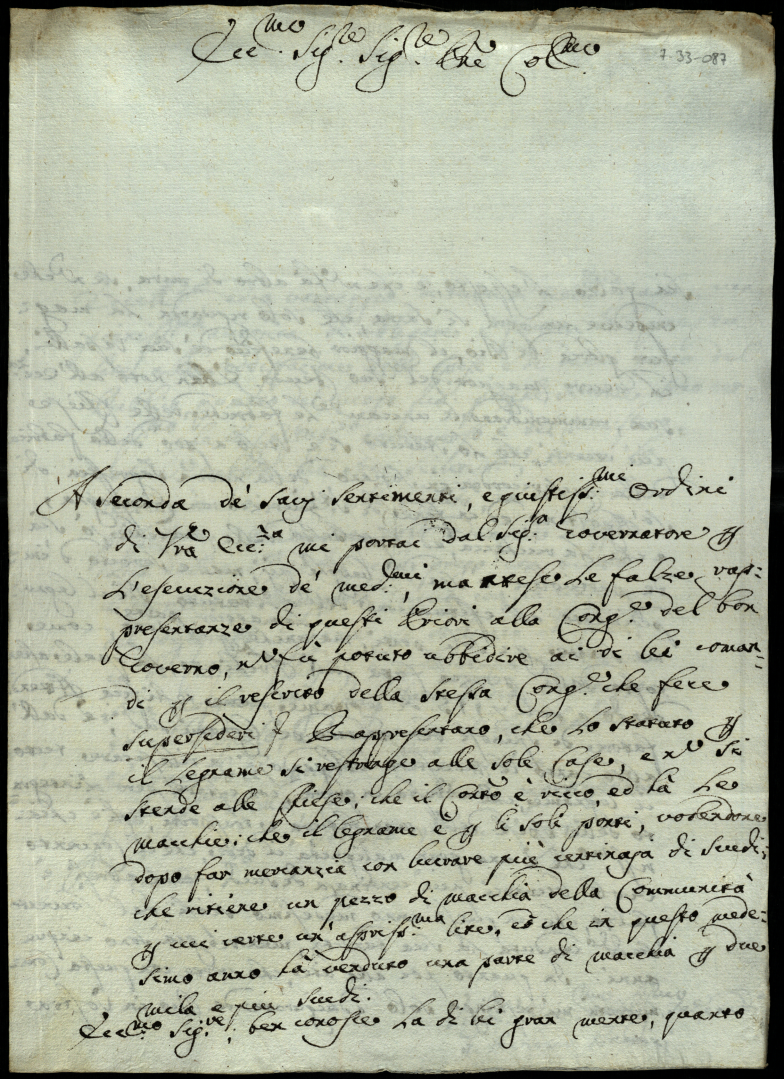 Ecc.mo Sig.re Sig.re Pñe Col.mo
7-33-087
A seconda de' savj sentimenti, e giustiss.mi ordini
di Vr̃a Ecc.za mi portai dal Sig.r Governatore p
l'esecuzione de' med.mi, ma attese le false rap=
presentanze di questi Priori alla Cong.e del bon
Governo, nõ fù potuto ubbidire ai di lei coman=
di p il rescritto della stessa Cong.e che fece
supersederi. Rappresentano, che lo statuto p
il legname si restringe alle sole Case, e nõ si
stende alle Chiese; che il Conṽto è ricco, ed hà le
macchie; che il legname è p li soli ponti, volendone
dopo far mercanzia con lucrare più centinaja di scudi;
che ritiene un pezzo di macchia della Communità
p cui verte un' aspriss.ma lite, e che in questo mede=
simo anno hà venduto una parte di macchia p due
mila e più scudi.
Ecc.mo Sig.re, ben conosce la di lei gran mente, quanto